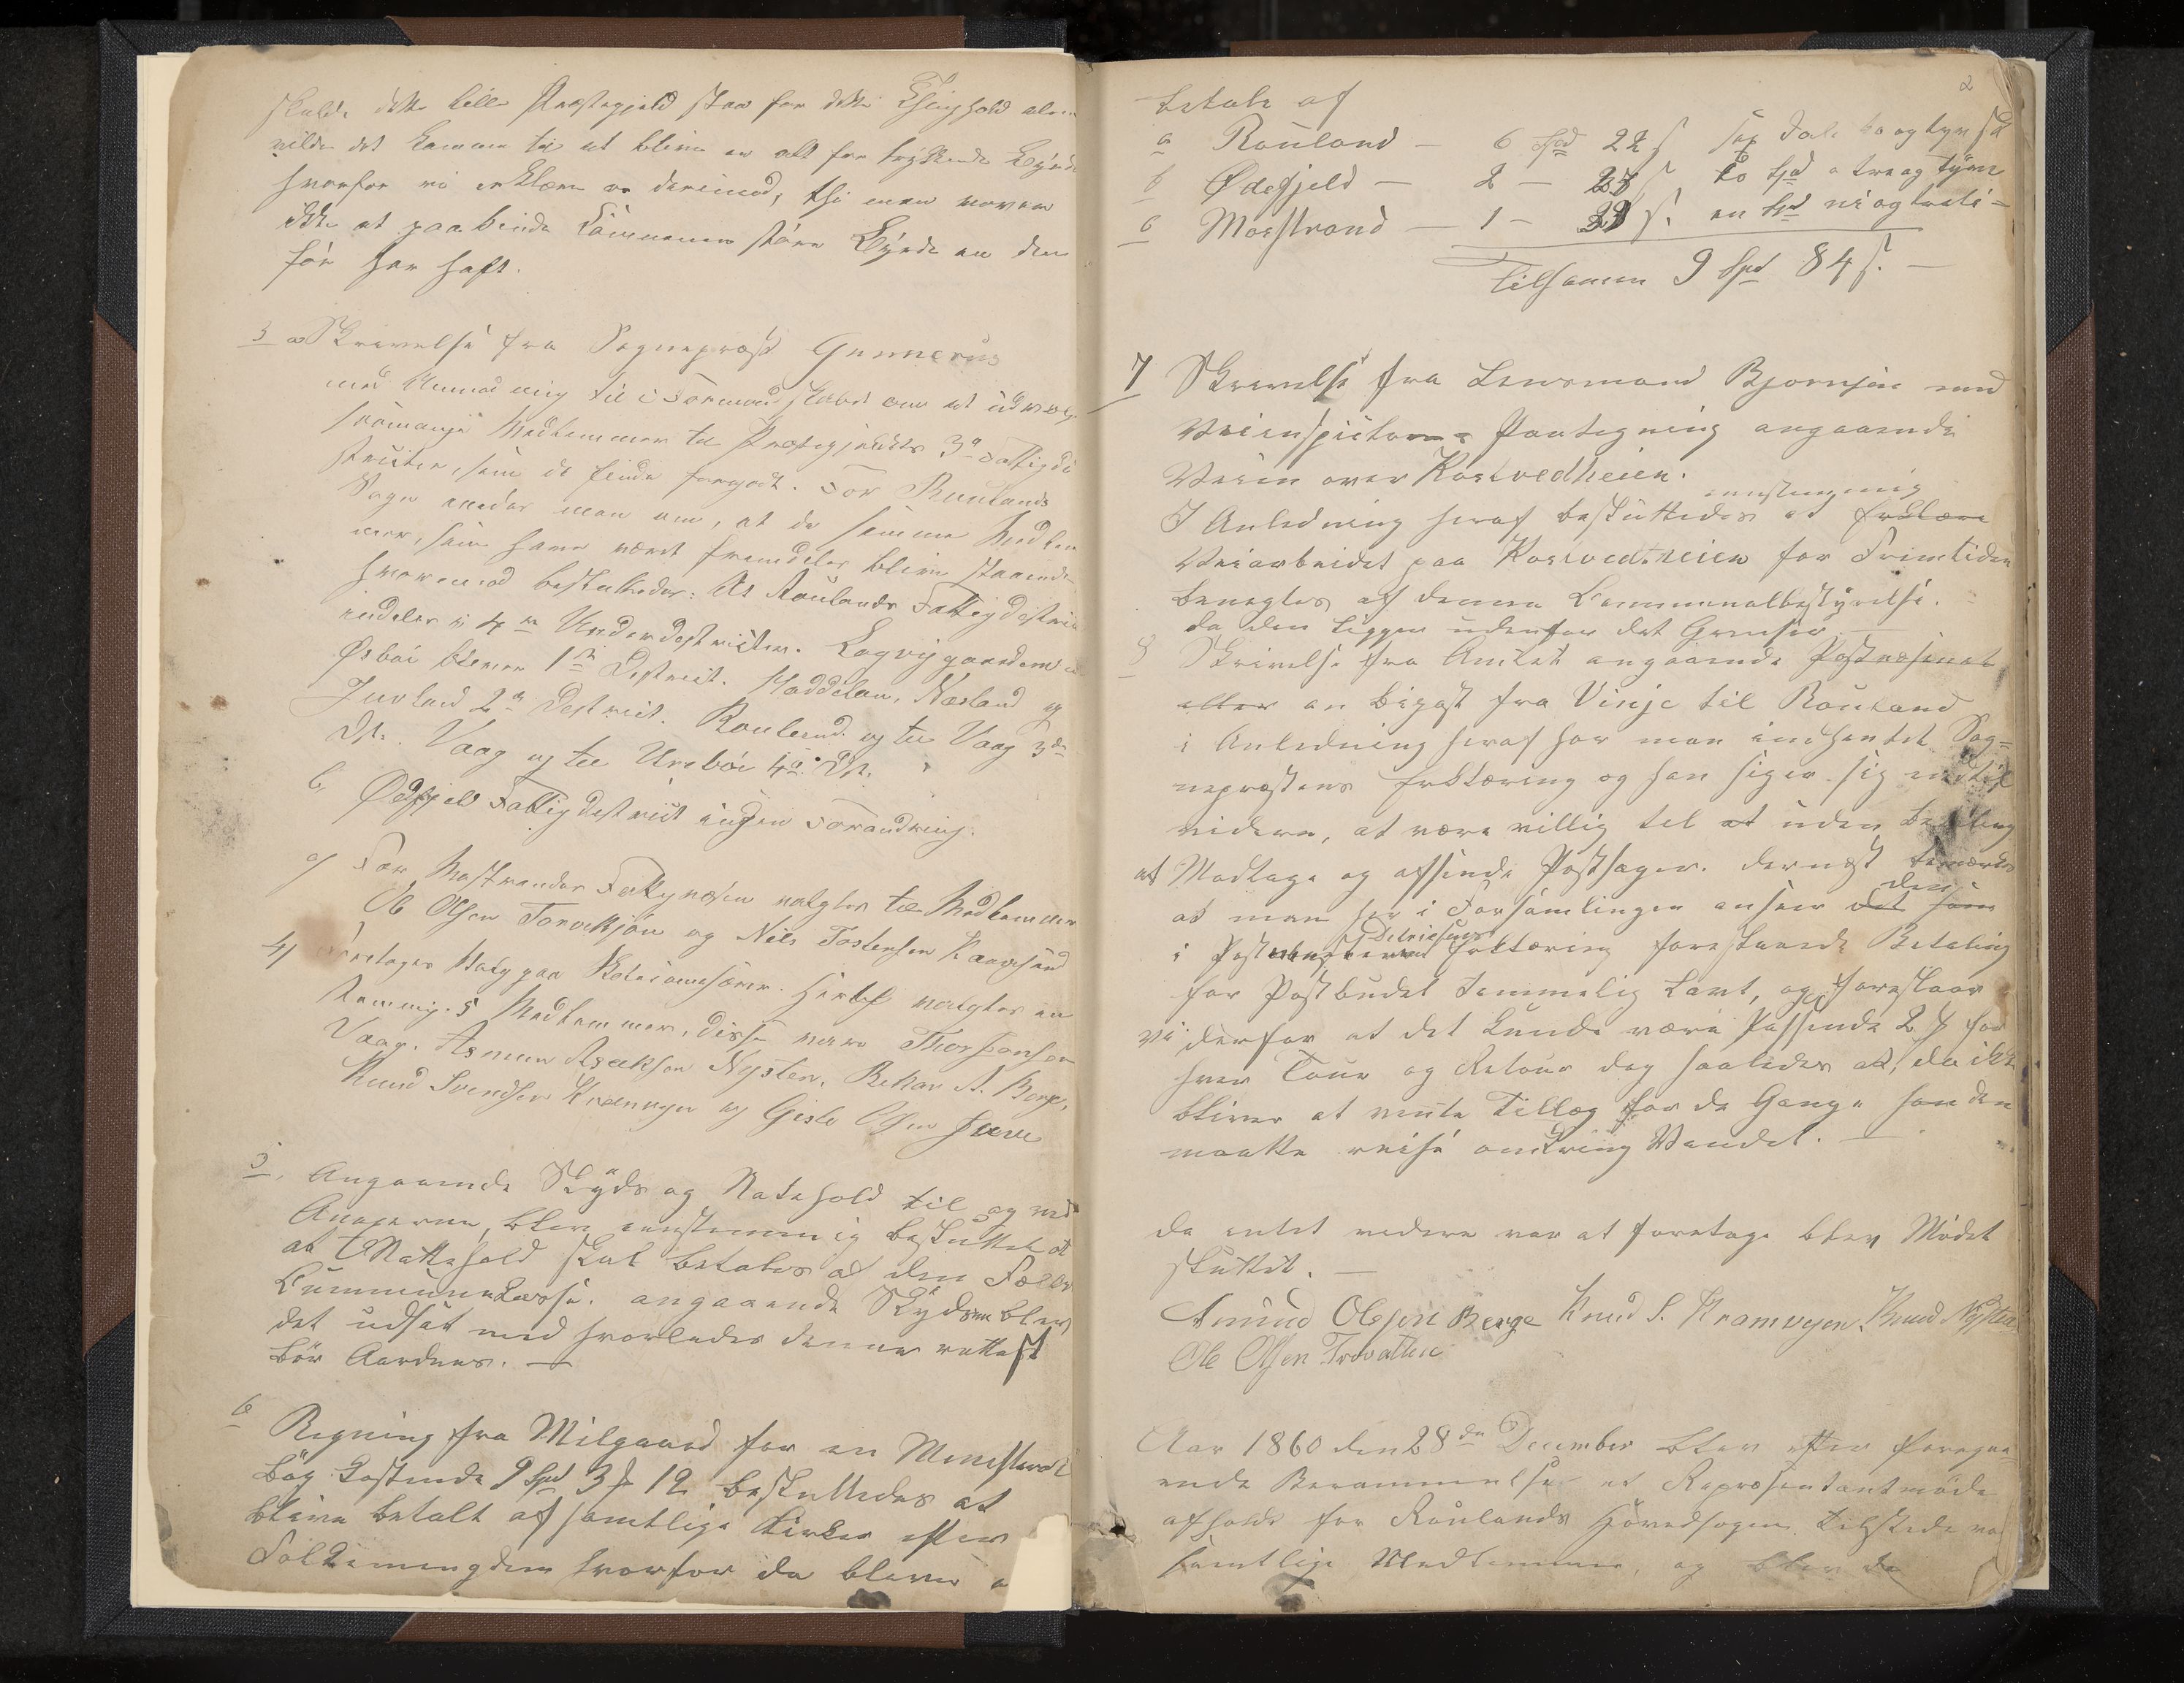 skulde dette lille Præstegjeld staa for dette Thinghold alene
vilde det komme til at blive en alt for trykkende Byrde
hvorfor vi erklære os derimod, thi man vover
ikke at paabinde Communen større Byrde en den
før har haft.
3 a Skrivelse fra Sognepræst Gunnerus
med Anmodning til Formandskabet om at udvælge
saamange Medlemmer til Præstegjeldets 3de Fattigdi
strikter, som de finde forgodt. For Raulands
Sogn enedes man om, at de samme Medlem
mer, som have været fremdeles blive staaende
hvorimod besluttedes: At Raulands Fattigdistrict
inddeles i 4re Underdistricter. Lognviggaardene
Øsbøi bliver 1ste District. Haddeland, Næsland og
Juvland 2de District. Rauland og til Vaag 3die
Dst. Vaag og til Urebøi 4de Dst.
b, Ødefjeld Fattigdistrict ingen Forandring.
c) For Mostrandes Fattigvæsen valgtes til Medlemmer
Ole Olsen Torvekjøn og Niels Tostensen Kaavesund
4) Foretages Valg paa Heraf valgtes en
stemmig. 5 Medlemmer, disse vare Thor Hansen
Vaag. Asmun Aslaksen Nysten, Rikar A. Berge,
Knud Svendsen Kramvegen og Gisle Olsen
5. Angaaende Skyds og Natehold til og med
blev eenstemmig besluttet at
at Nattehold skal betales af den Fælles
Commune Casse. angaaende Skydsen blev
det udsat med hvorledes denne rettest
bør Aardnes. —
6 Regning fra Milgaard for en Ministerial
bog kostende 9 Spd 3 ƒ 12 besluttedes at
blive betalt af samtlige Kirker efter
Folkemængden hvorfor de bliver a
2
betale af
a Rauland — 6 Spd 22 s sex Daler to og tyve s
b Ødefjeld — 2 — 23 s to Spd tre og tyve
c Mosstrand — 1 — 39 s. en Spd ni og tredi-
Tilsamen 9 Spd 84 s. —
7 Skrivelse fra Lensmand Bjornsen med
Veiinspecteurens Paategning angaaende
Veien over Kostvedheien.
I Anledning heraf besluttedes eenstemmig at erklære
Veiarbeidet paa Kostvedtheien for Fremtiden
benegtes af denne Communalbestyrelse.
da den ligger udenfor det Grænser.
8 Skrivelse fra Amtet angaaende Postvæsenet
eller en bipost fra Vinje til Rauland
i Anledning heraf har man indhentet Sog=
nepræstens Erklæring og han siger sig indtil
videre, at være villig til at uden betaling
at Modtage og afsende Postsager. dernæst bemærkes
at man her i Forsamlingen anseer det den som
i Postaabnerens Erklæring forestaaende Betaling
for Postbudet temmelig lavt, og foreslaar
vi derfor at det kunde være Passende 2 ƒ for
hver Tour og Retour dog saaledes at, der ikke
bliver at vente Tillæg for de Gange han den
maatte reise omkring Vandet. —
da intet videre var at foretage blev Mødet
sluttet. —
Amund Olesen Berge Knud S. Kramvegen. Knud Nysten
Ole Olsen Trovatten
Aar 1860 den 28de December blev efter foregaa
ende Berammelse et Repræsentantmøde
afholdt for Raulands Hovedsogn. tilstede var
samtlige Medlemmer, og blev da